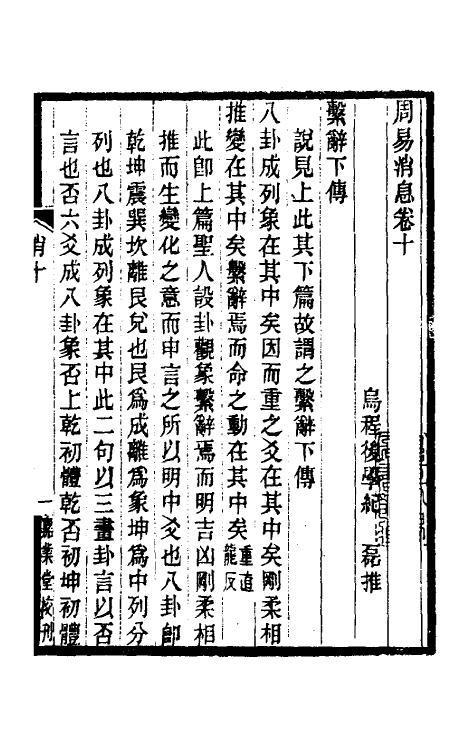 周易消息卷十
烏程後學紀磊推
繫辭下傳
說見上此其下篇故謂之繫辭下傳
八卦成列象在其中矣因而重之爻在其中矣剛柔相
推變在其中矣繫辭焉而命之動在其中矣重直龍反
此卽上篇聖人設卦觀象繫辭焉而明吉凶剛柔相
推而生變化之意而申言之所以明中爻也八卦卽
乾坤震巽坎離艮兌也艮爲成離爲象坤爲中列分
列也八卦成列象在其中此二句以三畫卦言以否
言也否六爻成八卦象否上乾初體乾否初坤初體
消十
一
嘉業堂校刊